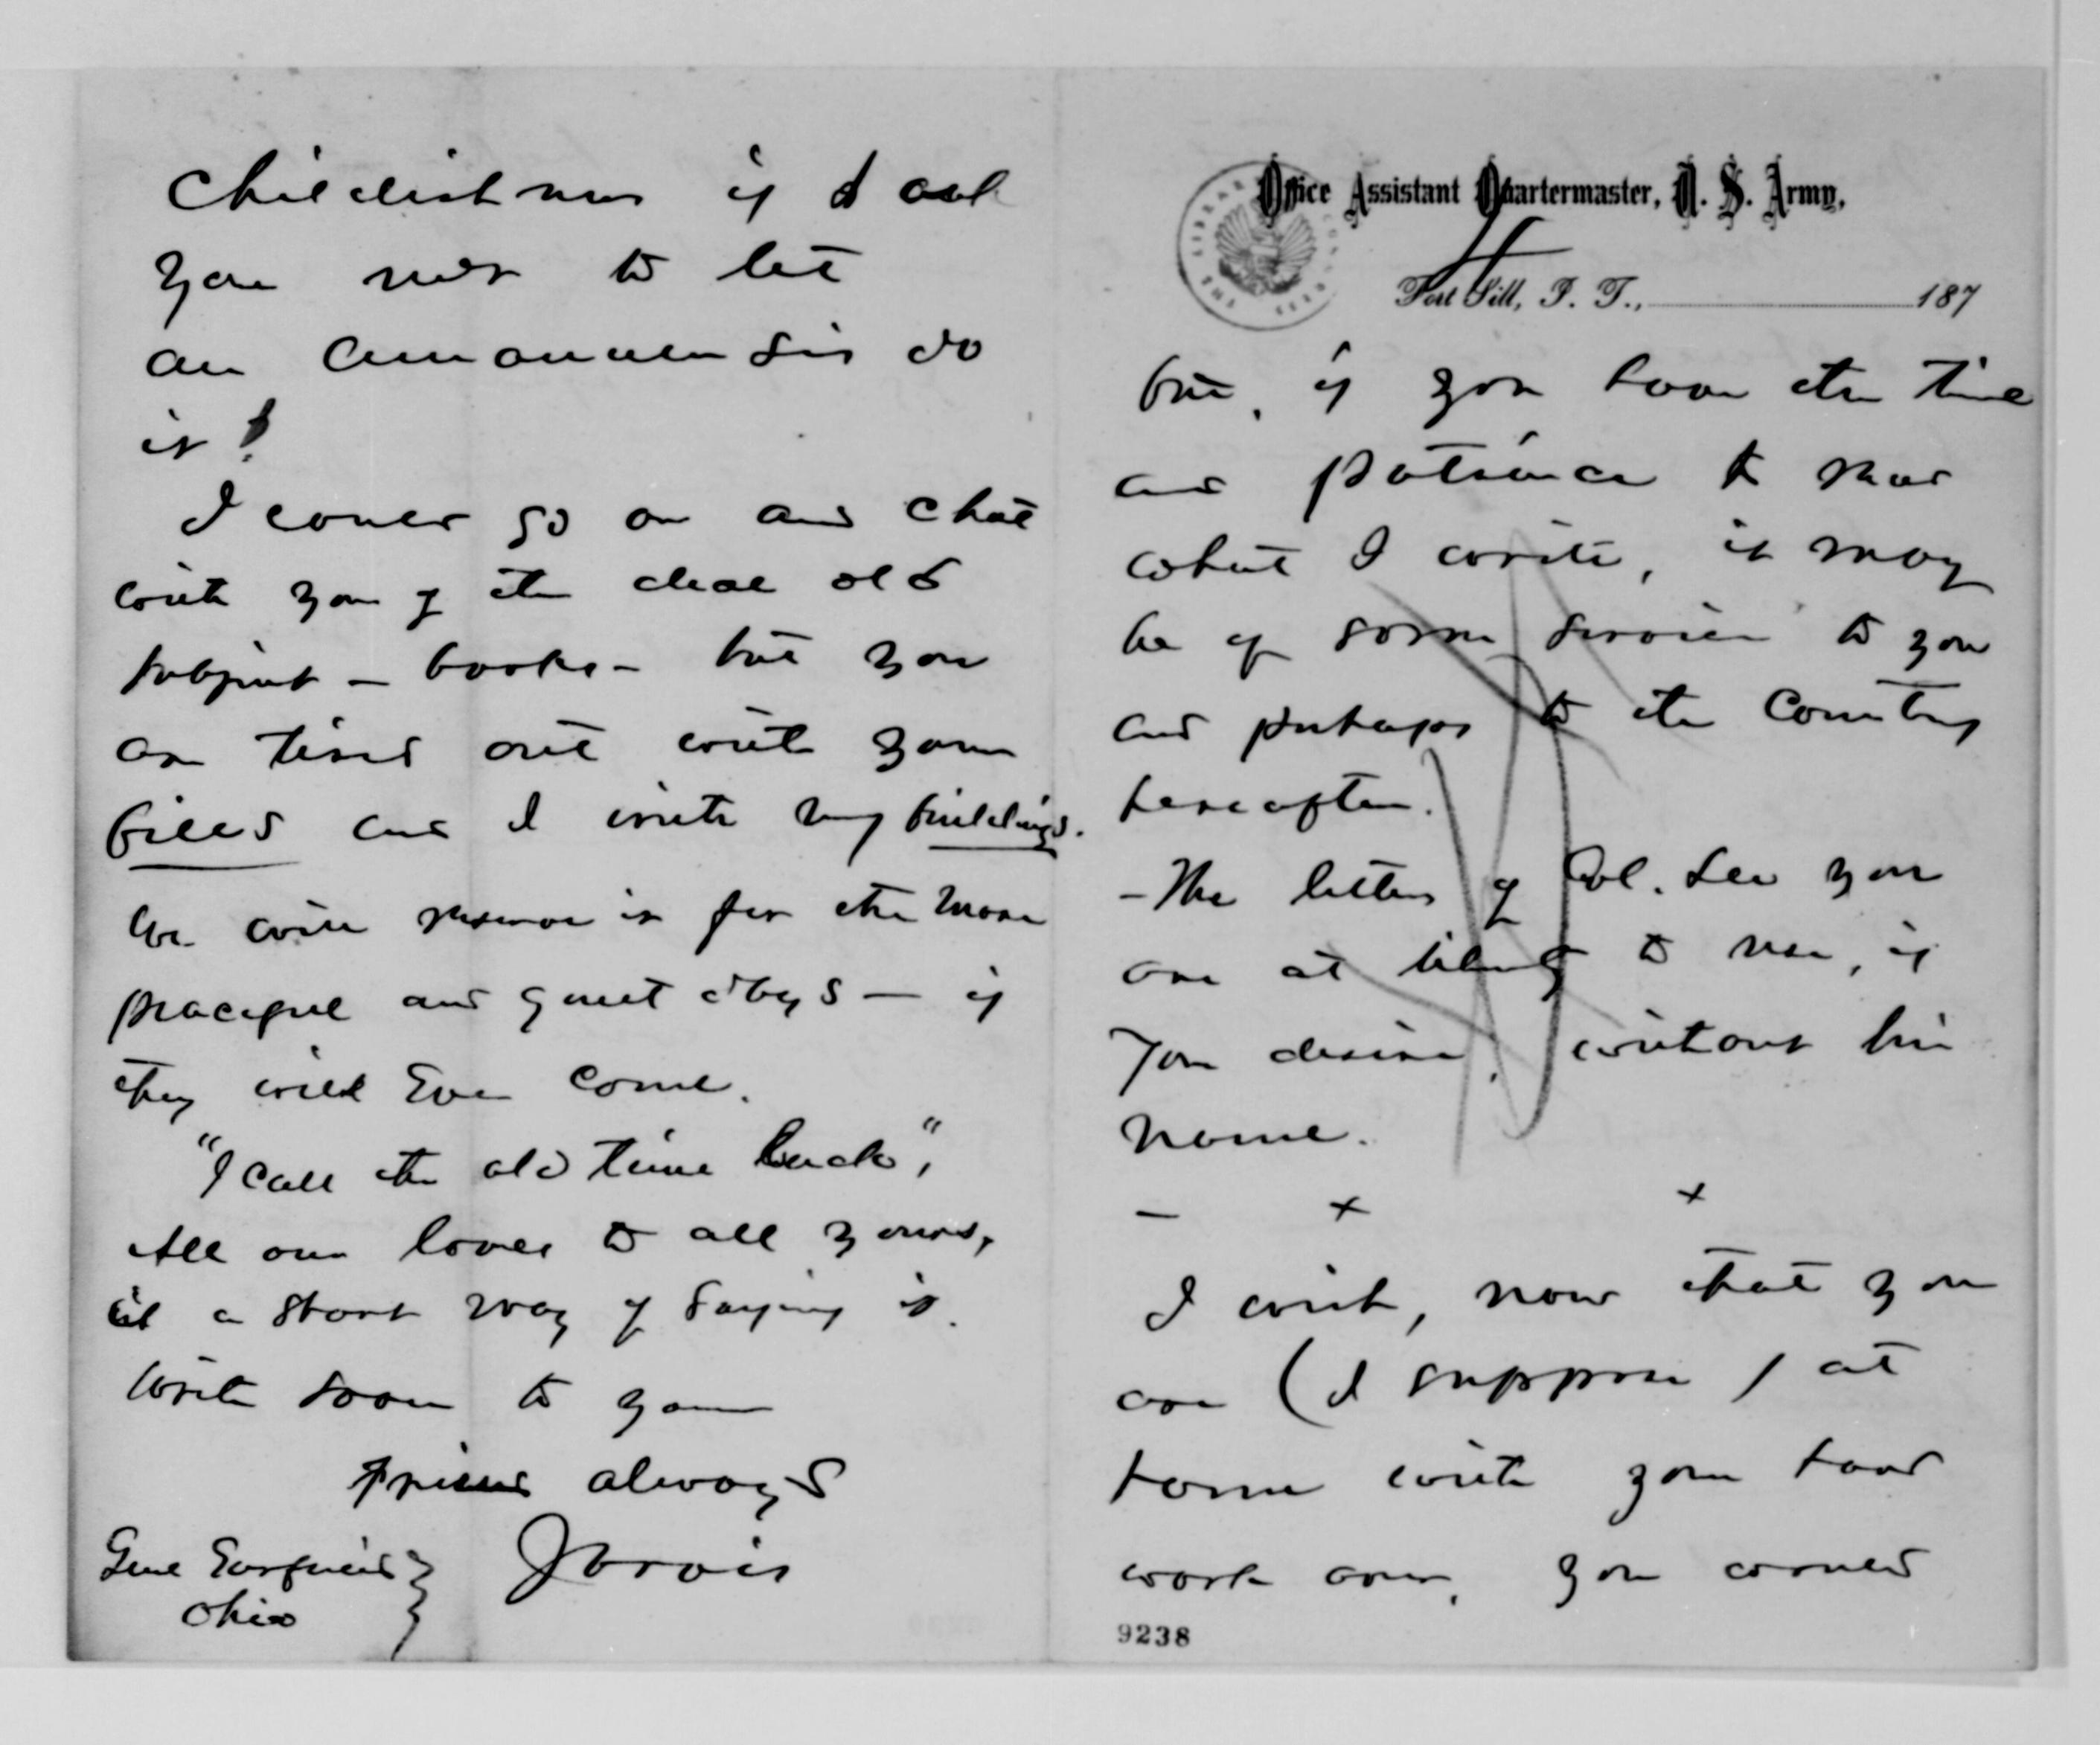 childishness if I ask
you not to let
an amanuensis do
it!
I could go on and chat
with you of the dear old
subject — books — but you
are tired out with your
bills and I with my buildings.
We will reserve it for the more
peaceful and quiet days — if
they will ever come.
"I call the old time back",
All our loves to all yours,
is a short way of saying it.
Write soon to your
friend always
Jarvis
Genl Garfield }
Ohio
Office Assistant Quartermaster, U. S. Army,
Fort Sill, I. T., 187
but, if you have the time
and patience to read
what I write, it may
be of some service to you
and perhaps to the Country
hereafter.
- The letters of Col. Lee you
are at liberty to use, if
you desire, without his
name.
— + +
I wish, now that you
are (I suppose) at
home with your hard
work over, you would
9238